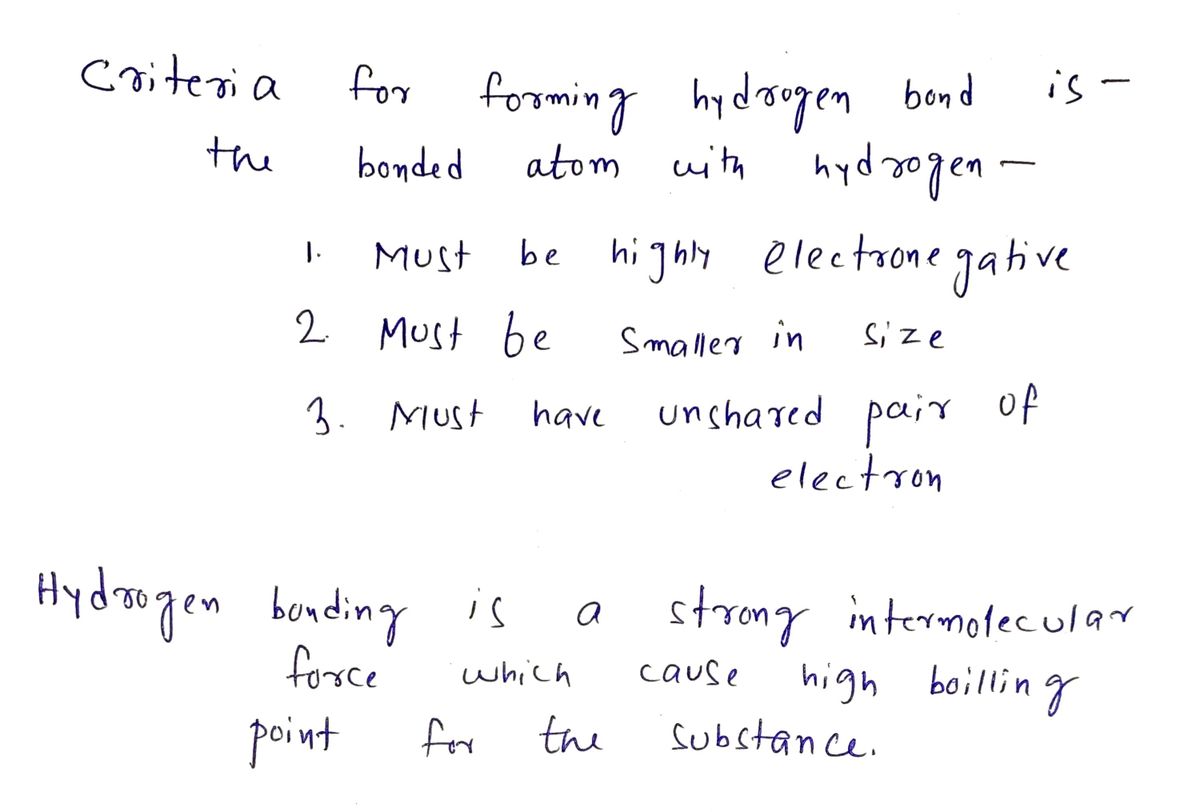 Criteria for forming hydrogen bond is -
the bonded atom with hydrogen -
1. Must be highly electronegative
2. Must be smaller in size
3. Must have unshared pair of
electron
Hydrogen bonding is a strong intermolecular
force which cause high boilling
point for the substance.